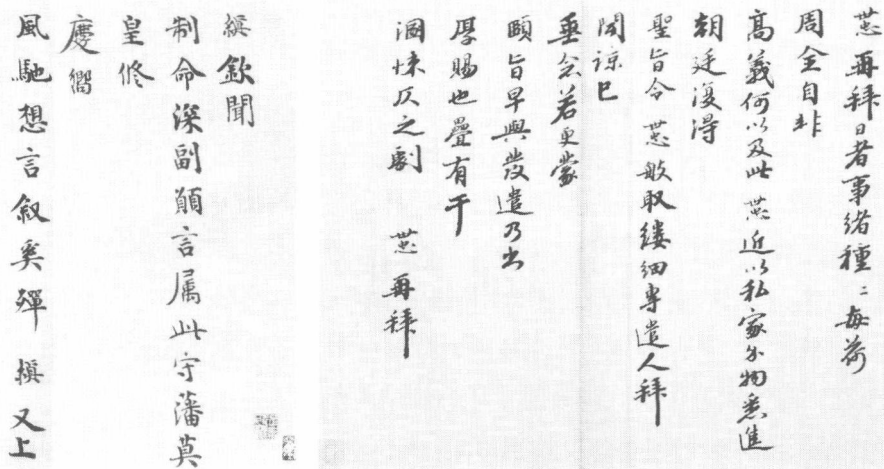 再拜日者事緒種〻每荷
周全自非
高義何以及此 近以私家分物悉進
朝廷復得
聖旨令 般取縷細專遣人拜
聞諒已
垂念若更蒙
頤旨早與發遣乃出
厚賜也疊有干
溷悚仄之劇 再拜
縝欽聞
制命深副願言属此守藩莫
皇修
慶嚮
風馳想言叙奚殫 縝又上